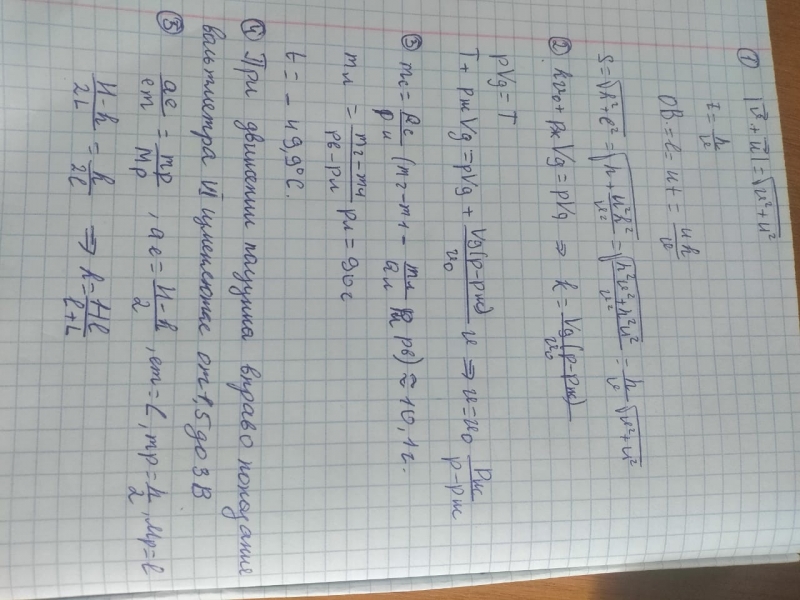 ① |v⃗ + u⃗| = √(v² + u²)
t = h/v
OB = l = ut = uh/v
S = √(h² + l²) = √(h + u²h²/v²) = √((h²v² + h²u²)/v²) = h/v √(v² + u²)
② kv₀ + ρж Vg = ρVg ⇒ k = Vg(ρ - ρж)/v₀
ρVg = T
T + ρж Vg = ρVg + Vg(ρ - ρж)/v₀ v ⇒ v = v₀ ρж/(ρ - ρж)
③ mс = ρс/ρи (m₂ - m₁ - mи/ρи ρв) ≈ 10,1 г.
mи = (m₂ - m₁)/(ρв - ρи) ρи = 90 г
t = - 49,9°C.
④ При движении ползунка вправо показание
вольтметра V₁ изменяются от 1,5 до 3 В
⑤ ae/em = mp/Mp, ae = (H - h)/2, em = L, mp = h/2, Mp = l
(H - h)/2L = h/2l ⇒ h = Hl/(l + L)